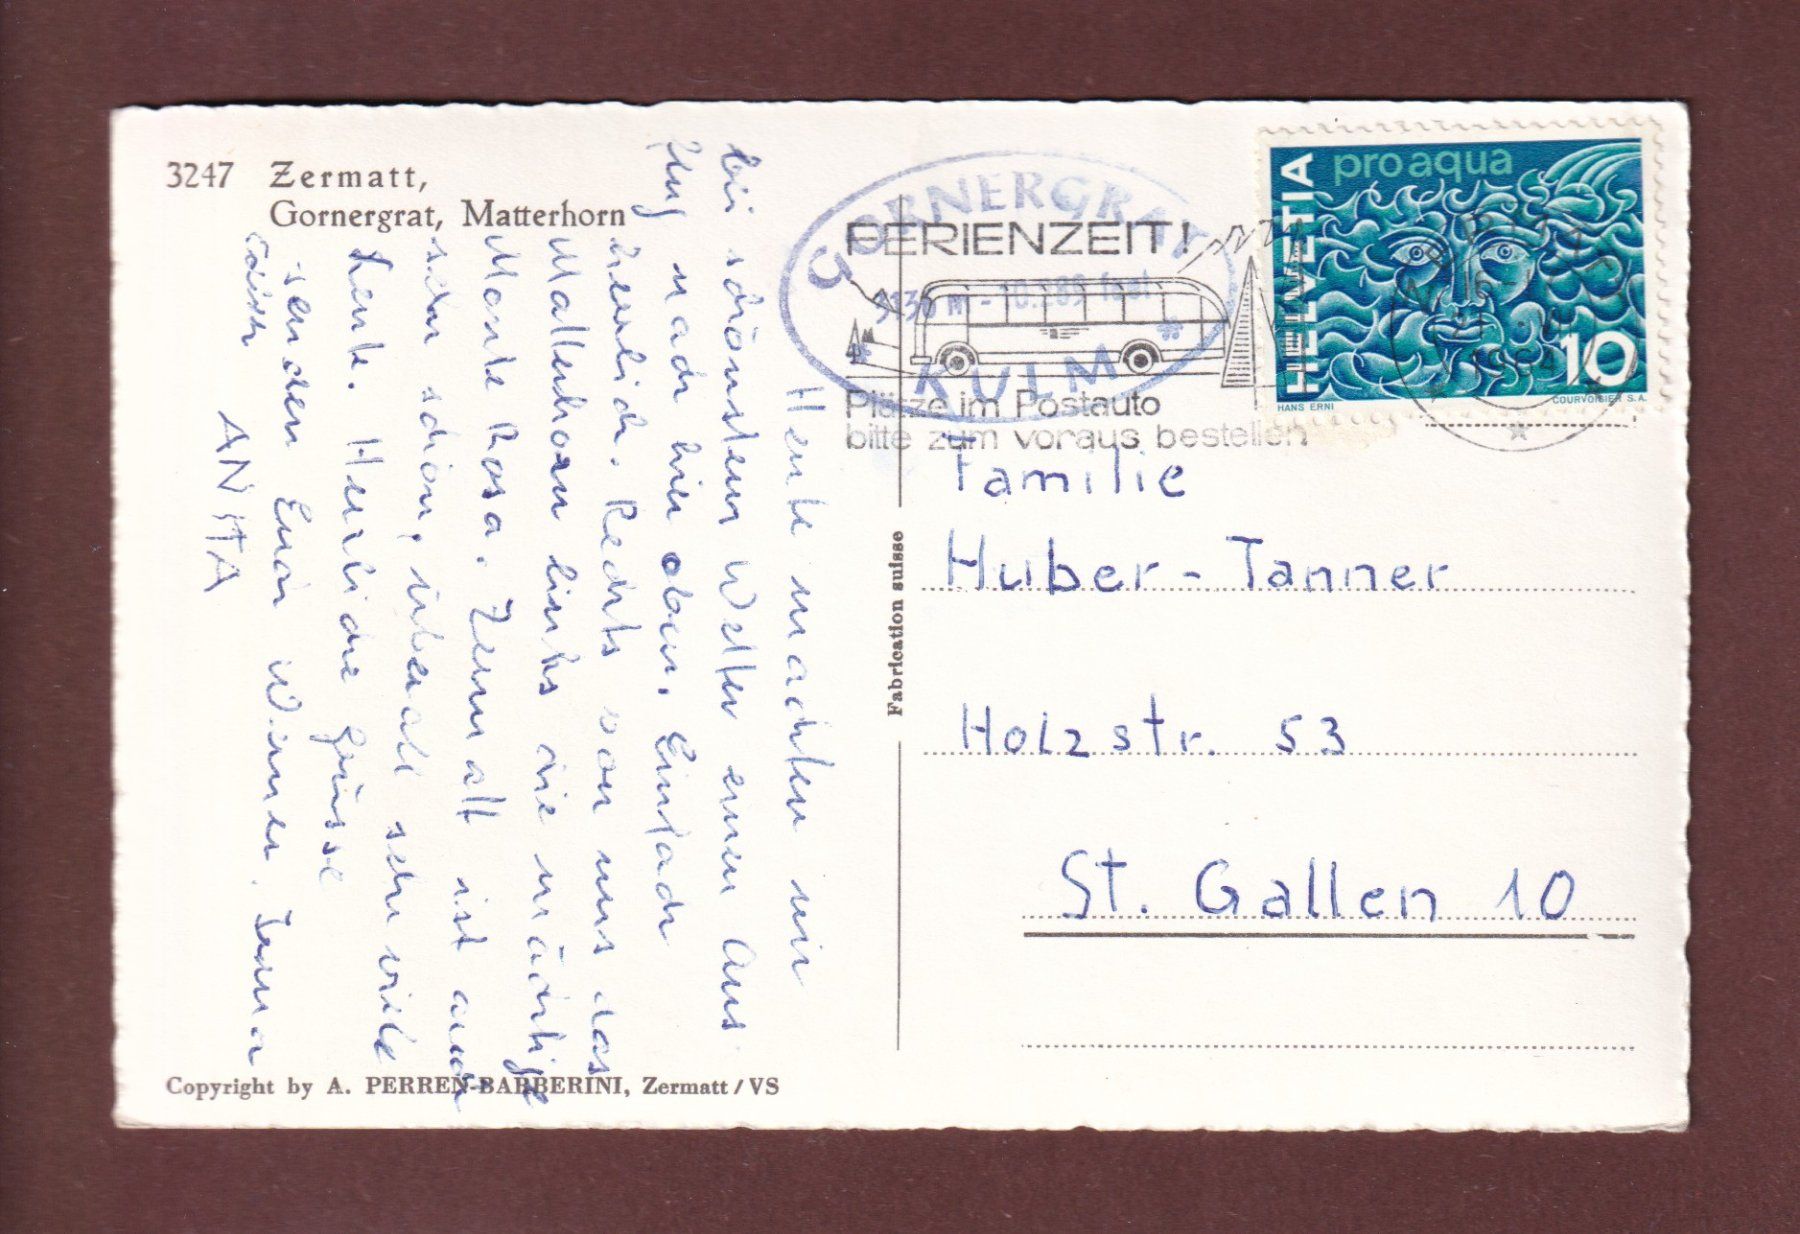 3247 Zermatt,
Gornergrat, Matterhorn
Heute machten wir
bei schönstem Wetter einen Aus-
flug nach hier oben. Einfach
herrlich. Rechts von uns das
Matterhorn links die mächtige
Monte Rosa. Zermatt ist auch
sehr schön, überall sehr viele
Leute. Herzliche Grüsse
senden Euch Werner, Irma
Edith
ANITA
Copyright by A. PERREN-BARBERINI, Zermatt/VS
Fabrication suisse
GORNERGRAT
3136 m - 10.289 feet
KULM
FERIENZEIT!
Plätze im Postauto
bitte zum voraus bestellen
HELVETIA
pro aqua
10
HANS ERNI
COURVOISIER S.A.
1964
Familie
Huber-Tanner
Holzstr. 53
St. Gallen 10